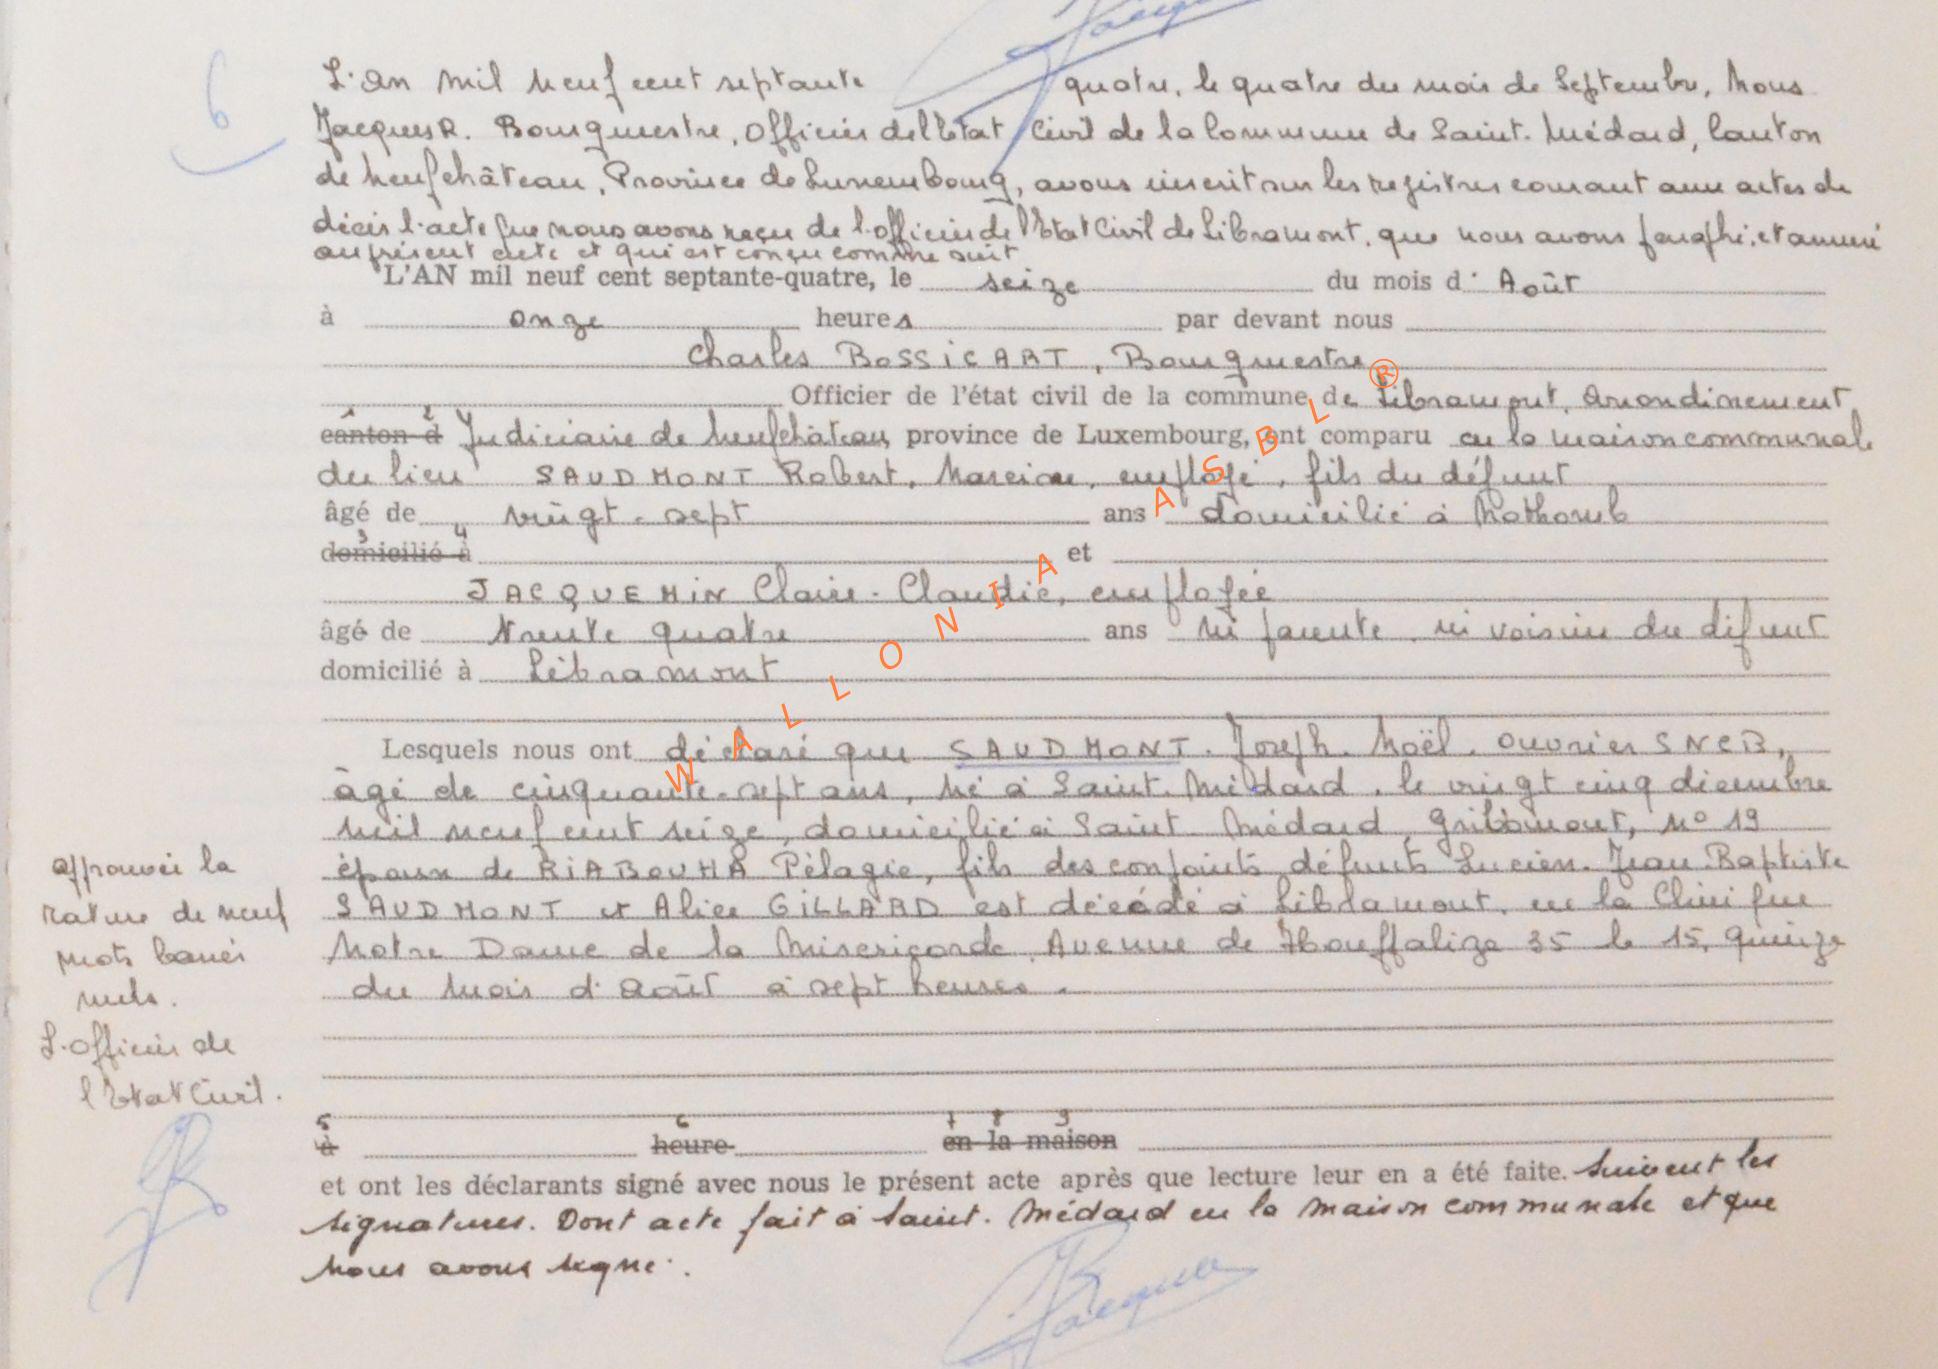 6
L'an mil neuf cent septante quatre, le quatre du mois de Septembre, Nous
Jacques R. Bourgmestre, Officier de l'Etat Civil de la Commune de Saint-Médard, Canton
de Neufchâteau, Province de Luxembourg, avons inscrit sur les registres courant aux actes de
décès l'acte que nous avons reçu de l'officier de l'Etat Civil de Libramont, que nous avons paraphé, et annexé
au présent acte et qui est conçu comme suit
L'AN mil neuf cent septante-quatre, le seize du mois d' Août
à onze heures par devant nous
Charles BOSSICART, Bourgmestre
Officier de l'état civil de la commune de Libramont, Arrondissement
1 2
canton d Judiciaire de Neufchâteau, province de Luxembourg, ont comparu en la maison communale
du lieu SAUDMONT Robert, employé, fils du défunt
âgé de vingt-sept ans domicilié à
3 4
domicilié à et
JACQUEMIN Claire-Claudie, employée
âgé de trente quatre ans ni parente, ni voisine du défunt
domicilié à Libramont
Lesquels nous ont déclaré que SAUDMONT. Joseph. Noël. Ouvrier SNCB,
âgé de cinquante-sept ans, né à Saint-Médard, le vingt cinq décembre
mil neuf cent seize, domicilié à Saint-Médard, Gribomont, n° 19
époux de RIABOUHA Pélagie, fils des conjoints défunts Lucien. Jean Baptiste
SAUDMONT et Alice GILLARD est décédé à Libramont, en la Clinique
Notre Dame de la Misericorde, Avenue de Houffalize 35 le 15, quinze
du mois d'Août à sept heures.
Approuvé la
rature de neuf
mots barrés
nuls.
L'officier de
l'Etat Civil.
5 6 7 8 9
à heure en la maison
et ont les déclarants signé avec nous le présent acte après que lecture leur en a été faite. Suivent les
signatures. Dont acte fait à Saint-Médard en la maison communale et que
nous avons signé.
Jacques
WALLONIA ASBL ®